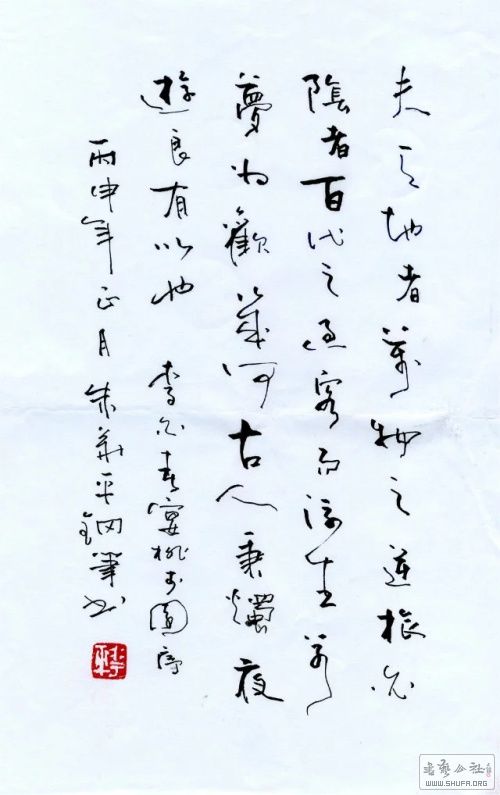 夫天地者萬物之逆旅光
陰者百代之過客而浮生若
夢为歡幾何古人秉燭夜
遊良有以也 李白春宴桃李園序
丙申年正月朱華平鋼筆书
書藝公社
WWW.SHUFA.ORG